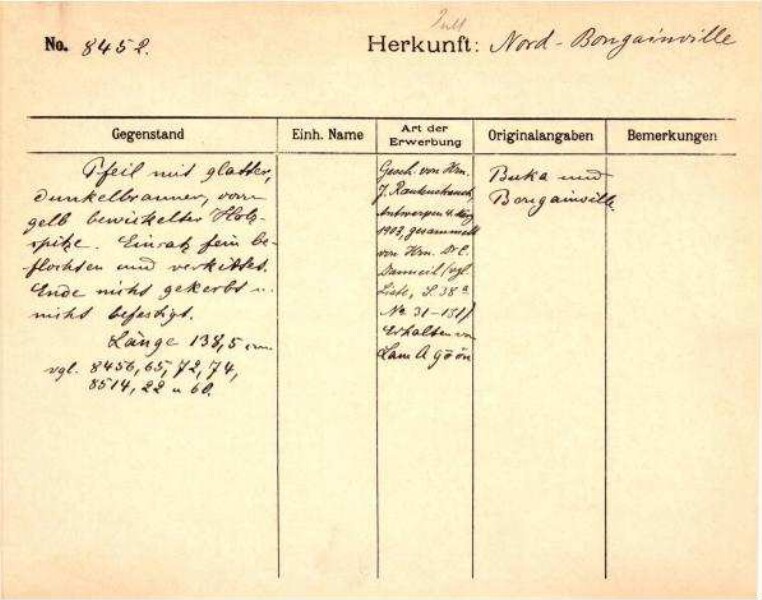 No. 8452.
Herkunft: Nord-Bougainville
Gegenstand
Einh. Name
Art der Erwerbung
Originalangaben
Bemerkungen
Pfeil mit glatter,
dunkelbrauner, vorn
gelb bewickelter Holz-
spitze. Einsatz fein be-
flochten und verkittet.
Ende nicht gekerbt u.
nicht befestigt.
Länge 138,5 cm
vgl. 8456, 65, 72, 74,
8514, 22 u 60.
Gesch. von Hrn.
J. Rautenstrauch,
Antwerpen 4. März
1903, gesammelt
von Hrn. Dr C.
Danneil (vgl.
Liste, S. 38a
No 31-131)
Erhalten von
Buka und
Bougainville.